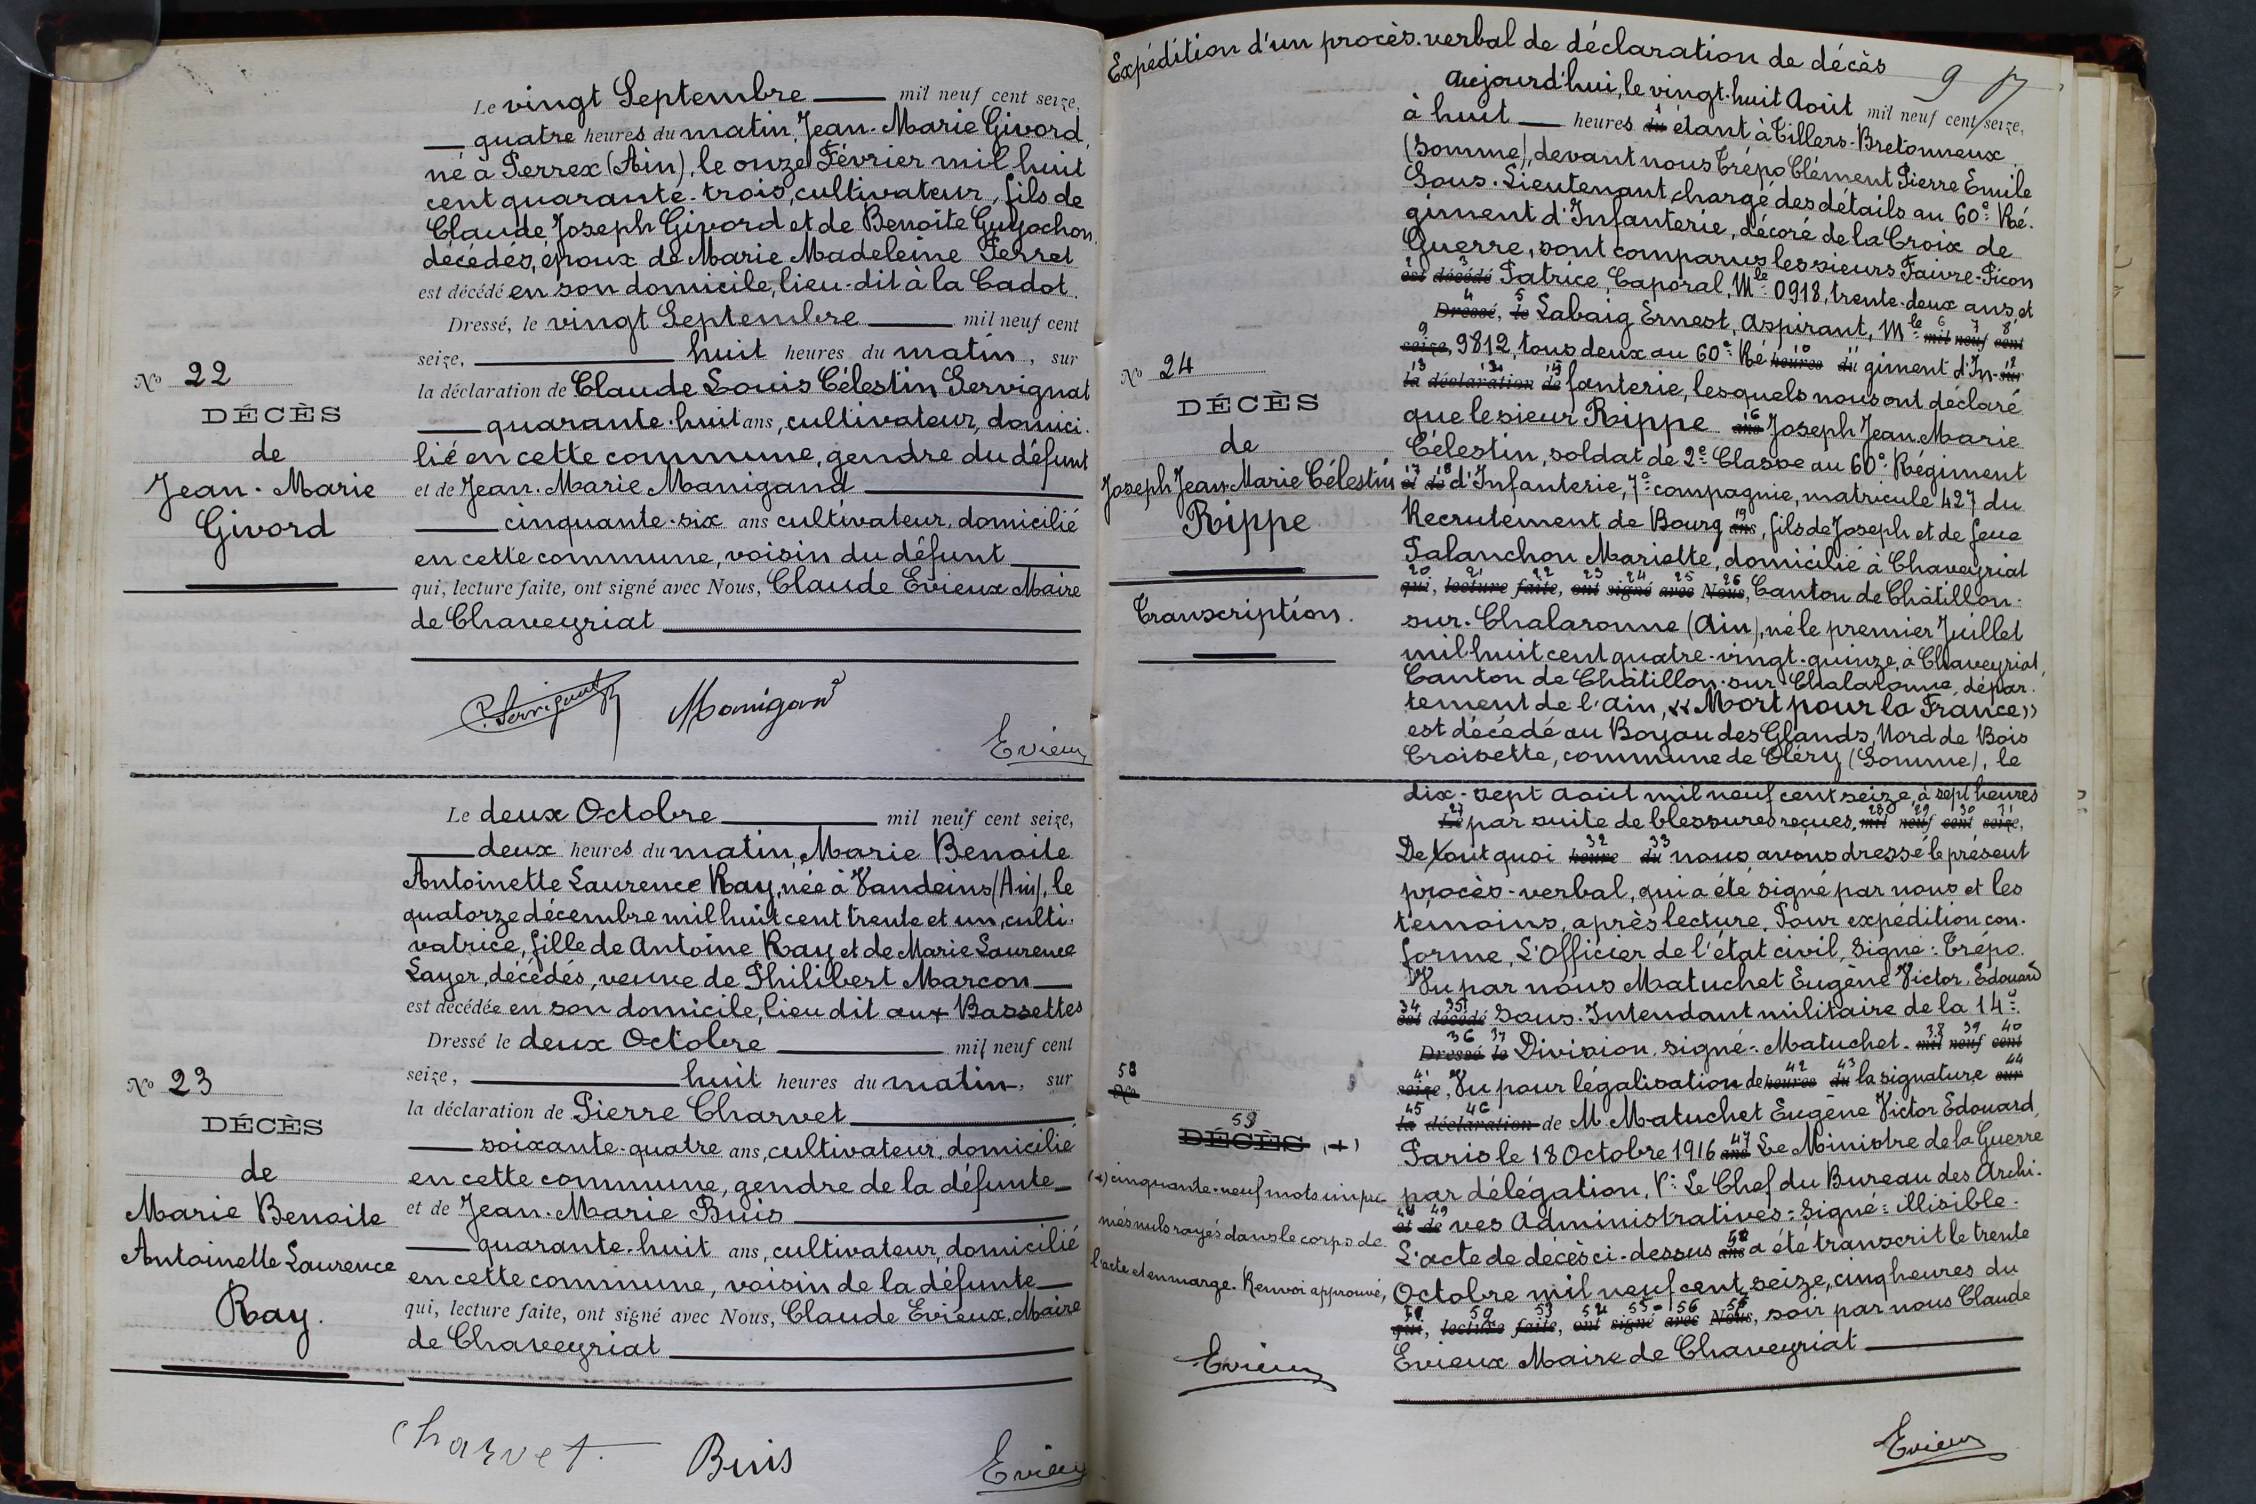 Le vingt Septembre mil neuf cent seize,
quatre heures du matin, Jean-Marie Givord,
né à Perrex (Ain), le onze Février mil huit
cent quarante-trois, cultivateur, fils de
Claude Joseph Givord et de Benoite Guyochon
décédés, époux de Marie Madeleine Ferret
est décédé en son domicile, lieu-dit à la Cadot.
Dressé, le vingt Septembre mil neuf cent
seize, huit heures du matin, sur
la déclaration de Claude Louis Célestin Servignat
quarante-huit ans, cultivateur, domici-
lié en cette commune, gendre du défunt
et de Jean-Marie Manigand
cinquante-six ans cultivateur, domicilié
en cette commune, voisin du défunt
qui, lecture faite, ont signé avec Nous, Claude Evieux Maire
de Chaveyriat
No 22
DÉCÈS
de
Jean-Marie
Givord
C. Servignat Manigand
Evieux
Le deux Octobre mil neuf cent seize,
deux heures du matin, Marie Benoite
Antoinette Laurence Ray, née à Vandeins (Ain), le
quatorze décembre mil huit cent trente et un, culti-
vatrice, fille de Antoine Ray et de Marie Laurence
Layer, décédés, veuve de Philibert Marcon
est décédée en son domicile, lieu dit aux Bassettes
Dressé le deux Octobre mil neuf cent
seize, huit heures du matin, sur
la déclaration de Pierre Charvet
soixante-quatre ans, cultivateur, domicilié
en cette commune, gendre de la défunte
et de Jean-Marie Buis
quarante-huit ans, cultivateur, domicilié
en cette commune, voisin de la défunte
qui, lecture faite, ont signé avec Nous, Claude Evieux, Maire
de Chaveyriat
No 23
DÉCÈS
de
Marie Benoite
Antoinette Laurence
Ray.
Charvet. Buis Evieux
Expédition d'un procès-verbal de déclaration de décès
9
Aujourd'hui, le vingt-huit Août mil neuf cent seize,
à huit heures du 1 étant à Villers-Bretonneux
(Somme), devant nous Trépo Clément Pierre Emile
Sous-Lieutenant, chargé des détails au 60e Ré-
giment d'Infanterie, décoré de la Croix de
Guerre, sont comparus les sieurs Faivre-Picon
est 2 décédé 3 Patrice, Caporal, Mle 0918, trente-deux ans, et
Dressé, 4 le 5 Labaig Ernest, Aspirant, Mle mil 6 neuf 7 cent 8
seize, 9 9812, tous deux au 60e Ré heures 10 du 11 giment d'In- sur 12
la 13 déclaration 14 de 15 fanterie, lesquels nous ont déclaré
que le sieur Rippe ans 16 Joseph Jean Marie
Célestin, soldat de 2e Classe au 60e Régiment
et 17 de 18 d'Infanterie, 7e compagnie, matricule 427 du
Recrutement de Bourg ans 19, fils de Joseph et de feue
Palanchon Mariette, domicilié à Chaveyriat
qui, 20 lecture 21 faite, 22 ont 23 signé 24 avec 25 Nous, 26 Canton de Châtillon-
sur-Chalaronne (Ain), né le premier Juillet
mil huit cent quatre-vingt-quinze, à Chaveyriat,
Canton de Châtillon-sur-Chalaronne, dépar-
tement de l'Ain, «Mort pour la France»
est décédé au Boyau des Glands, Nord de Bois
Croisette, commune de Cléry (Somme), le
dix-sept Août mil neuf cent seize, à sept heures
Le 27 par suite de blessures reçues, mil 28 neuf 29 cent 30 seize, 31
De tout quoi heure 32 du 33 nous avons dressé le présent
procès-verbal, qui a été signé par nous et les
témoins, après lecture. Pour expédition con-
forme, L'Officier de l'état civil, Signé: Trépo.
Vu par nous Matuchet Eugène Victor Edouard
est 34 décédé 35 Sous-Intendant militaire de la 14e
Dressé 36 le 37 Division, signé: Matuchet. mil 38 neuf 39 cent 40
seize, 41 Vu pour légalisation de heures 42 du 43 la signature sur 44
la 45 déclaration 46 de M. Matuchet Eugène Victor Edouard,
Paris le 18 Octobre 1916 ans 47 Le Ministre de la Guerre
par délégation, Pr Le Chef du Bureau des Archi-
et 48 de 49 ves Administratives: Signé: illisible.
L'acte de décès ci-dessus ans a été transcrit le trente
Octobre mil neuf cent seize, cinq heures du
qui, lecture faite, 53 ont 54 signé 55 avec 56 Nous, soir par nous Claude
Evieux Maire de Chaveyriat
No 24
DÉCÈS
de
Joseph Jean Marie Célestin
Rippe
Transcription.
58
No
DÉCÈS (+)
(+) cinquante-neuf mots impri-
més nuls rayés dans le corps de
l'acte et en marge. Renvoi approuvé,
Evieux
Evieux